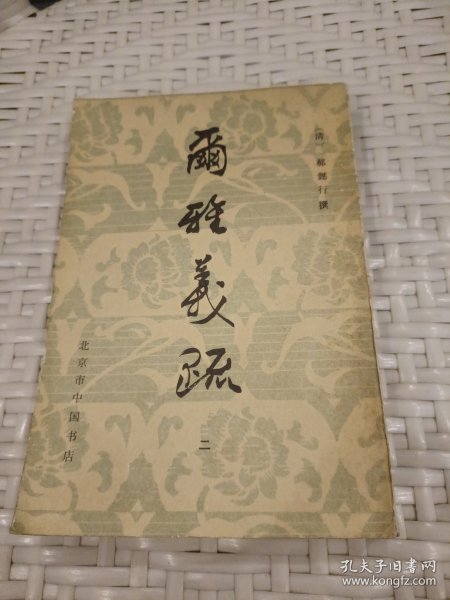 〔清〕郝懿行撰
爾雅義疏
二
北京市中国书店
孔夫子旧书网
www.kongfz.com